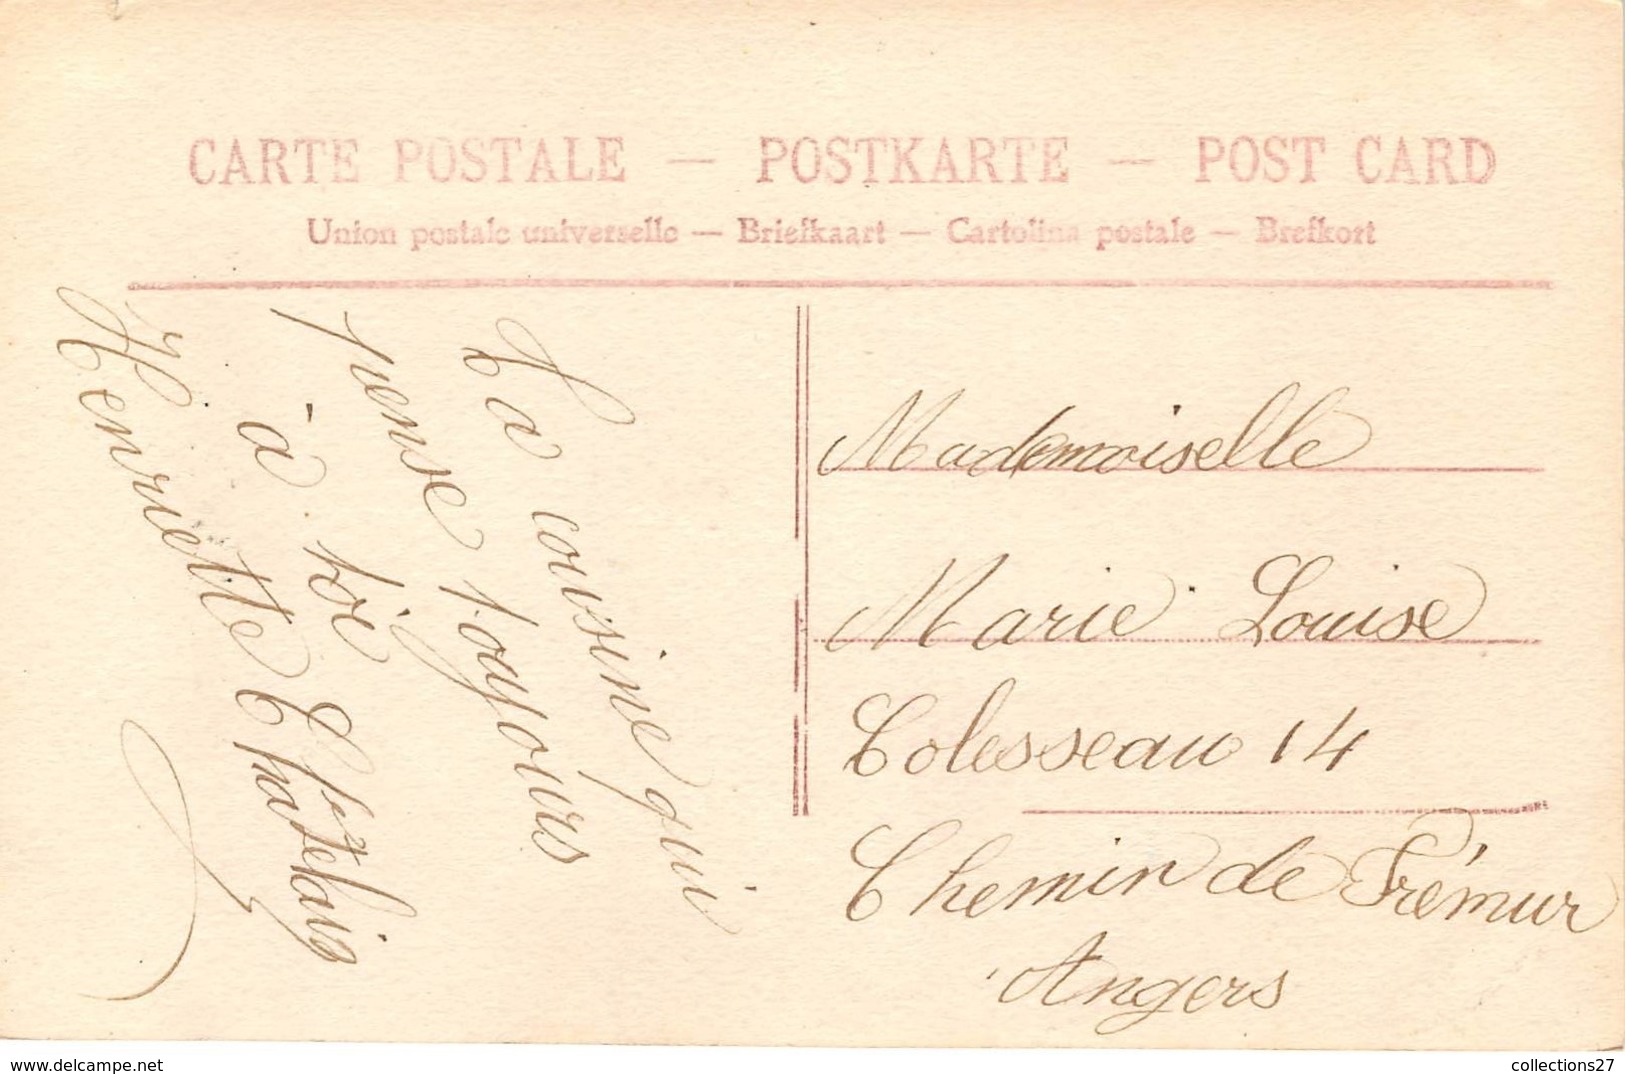 CARTE POSTALE — POSTKARTE — POST CARD
Union postale universelle — Briefkaart — Cartolina postale — Brefkort
Ta cousine qui
pense toujours
à toi
Henriette Chastelais
Mademoiselle
Marie Louise
Colesseau 14
Chemin de Frémur
Angers
www.delcampe.net
collections27